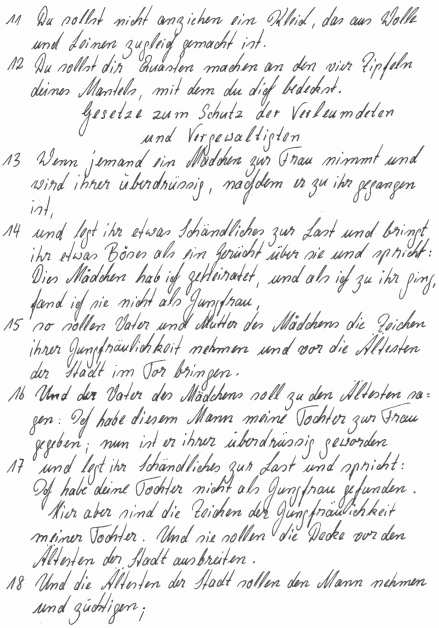 11 Du sollst nicht anziehen ein Kleid, das aus Wolle
und Leinen zugleich gemacht ist.
12 Du sollst dir Quasten machen an den vier Zipfeln
deines Mantels, mit dem du dich bedeckst.
Gesetze zum Schutz der Verleumdeten
und Vergewaltigten
13 Wenn jemand ein Mädchen zur Frau nimmt und
wird ihrer überdrüssig, nachdem er zu ihr gegangen
ist,
14 und legt ihr etwas Schändliches zur Last und bringt
ihr etwas Böses als ein Gerücht über sie und spricht:
Dies Mädchen hab ich geheiratet, und als ich zu ihr ging,
fand ich sie nicht als Jungfrau,
15 so sollen Vater und Mutter des Mädchens die Zeichen
ihrer Jungfräulichkeit nehmen und vor die Ältesten
der Stadt im Tor bringen.
16 Und der Vater des Mädchens soll zu den Ältesten sa=
gen: Ich habe diesem Mann meine Tochter zur Frau
gegeben; nun ist er ihrer überdrüssig geworden
17 und legt ihr Schändliches zur Last und spricht:
Ich habe deine Tochter nicht als Jungfrau gefunden.
Hier aber sind die Zeichen der Jungfräulichkeit
meiner Tochter. Und sie sollen die Decke vor den
Ältesten der Stadt ausbreiten.
18 Und die Ältesten der Stadt sollen den Mann nehmen
und züchtigen;